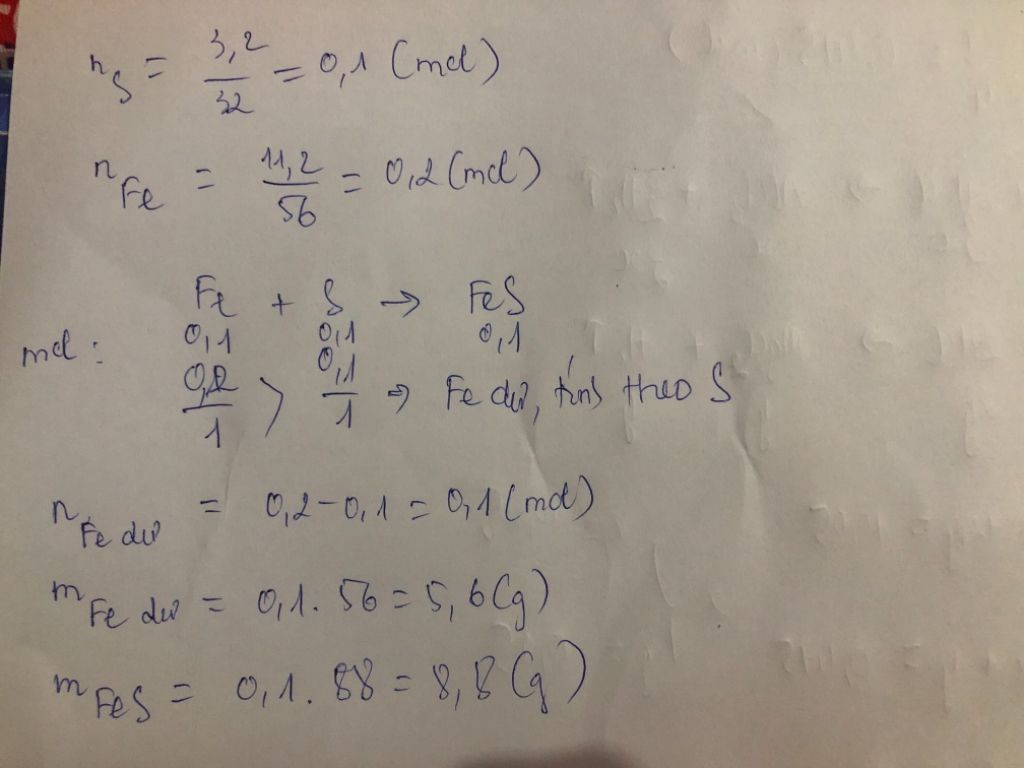 n_S = 3,2/32 = 0,1 (mol)
n_Fe = 11,2/56 = 0,2 (mol)
Fe + S → FeS
mol: 0,1 0,1 0,1
0,2/1 > 0,1/1 → Fe dư, tính theo S
n_Fe dư = 0,2 - 0,1 = 0,1 (mol)
m_Fe dư = 0,1 . 56 = 5,6 (g)
m_FeS = 0,1 . 88 = 8,8 (g)